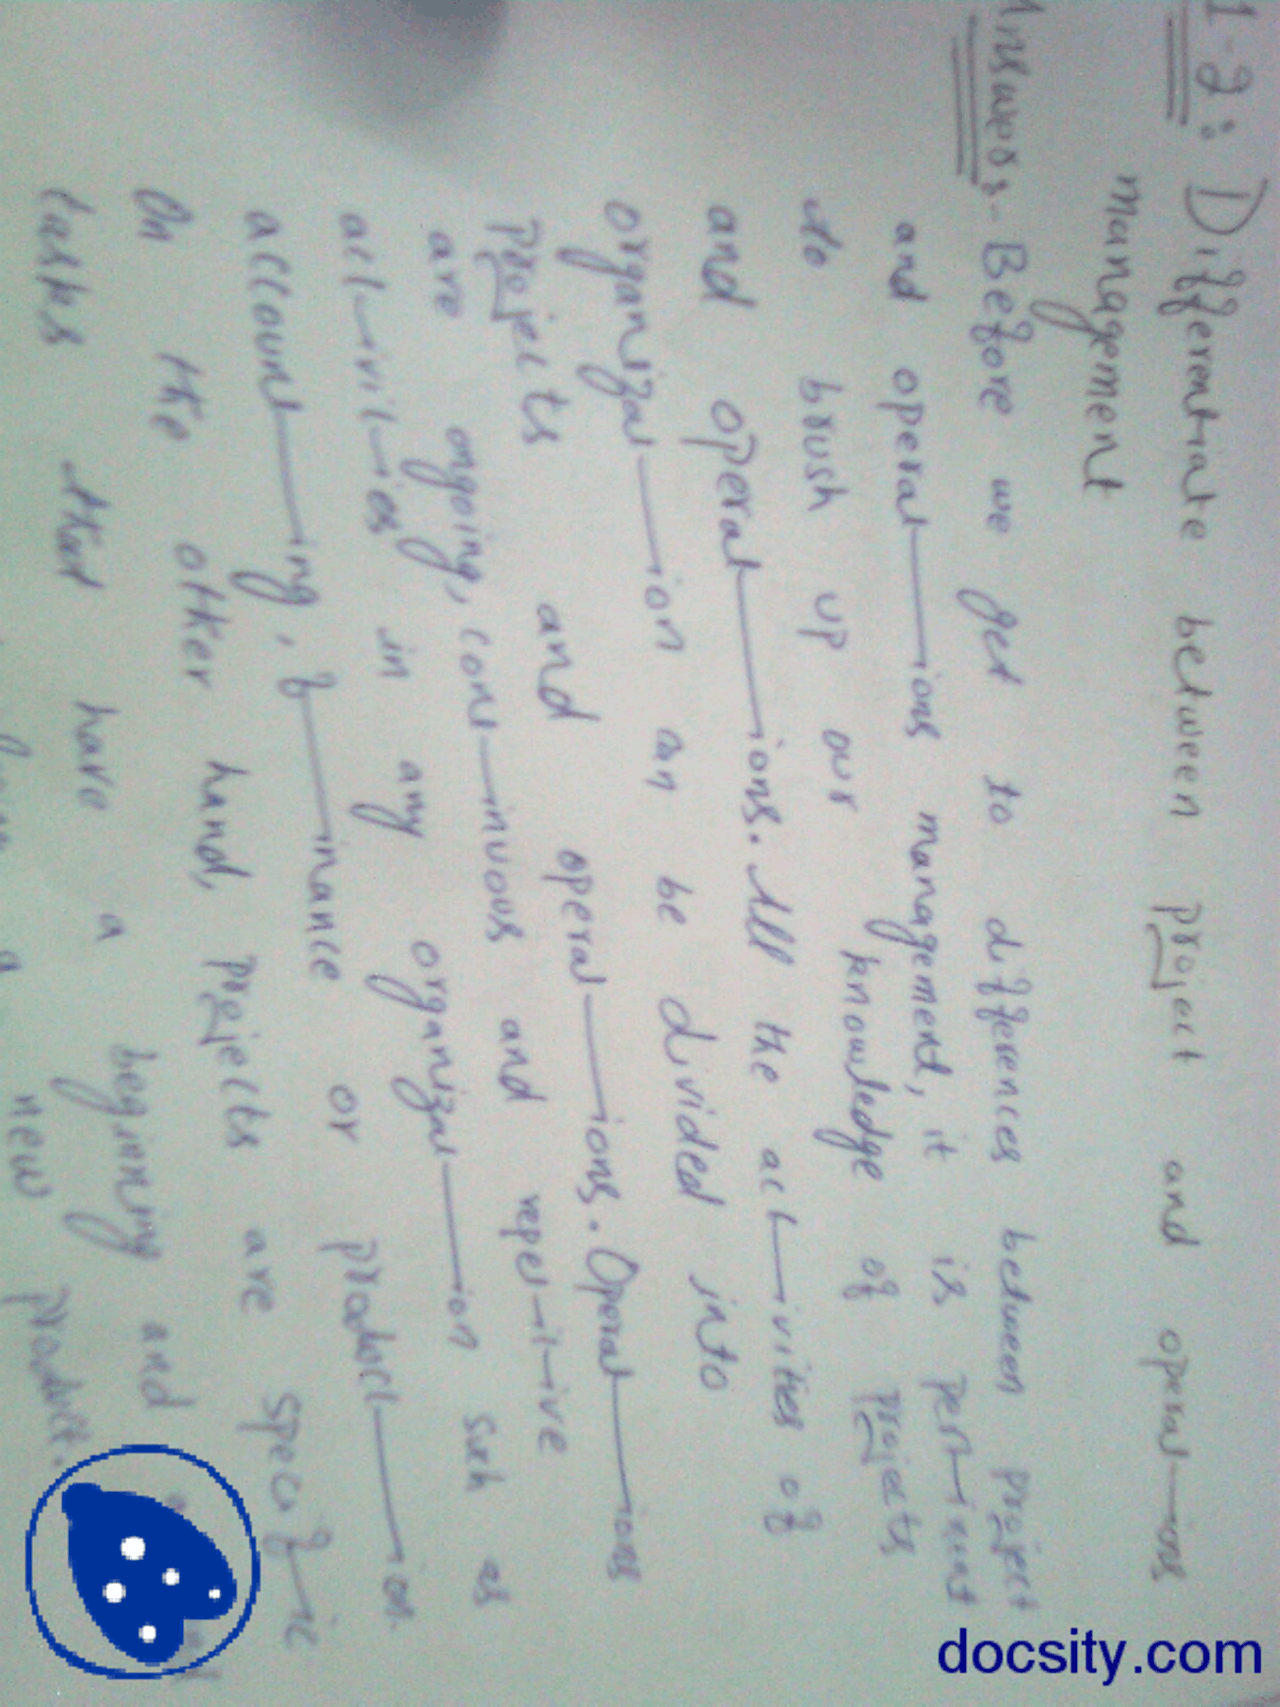 1-2: Differentiate between project and operations
management
Answer:- Before we get to differences between project
and operations management, it is pertinent
to brush up our knowledge of projects
and operations. All the activities of
organization can be divided into
projects and operations. Operations
are ongoing, continuous and repetitive
activities in any organization such as
accounting, finance or production.
On the other hand, projects are specific
tasks that have a beginning and
a new product.
docsity.com